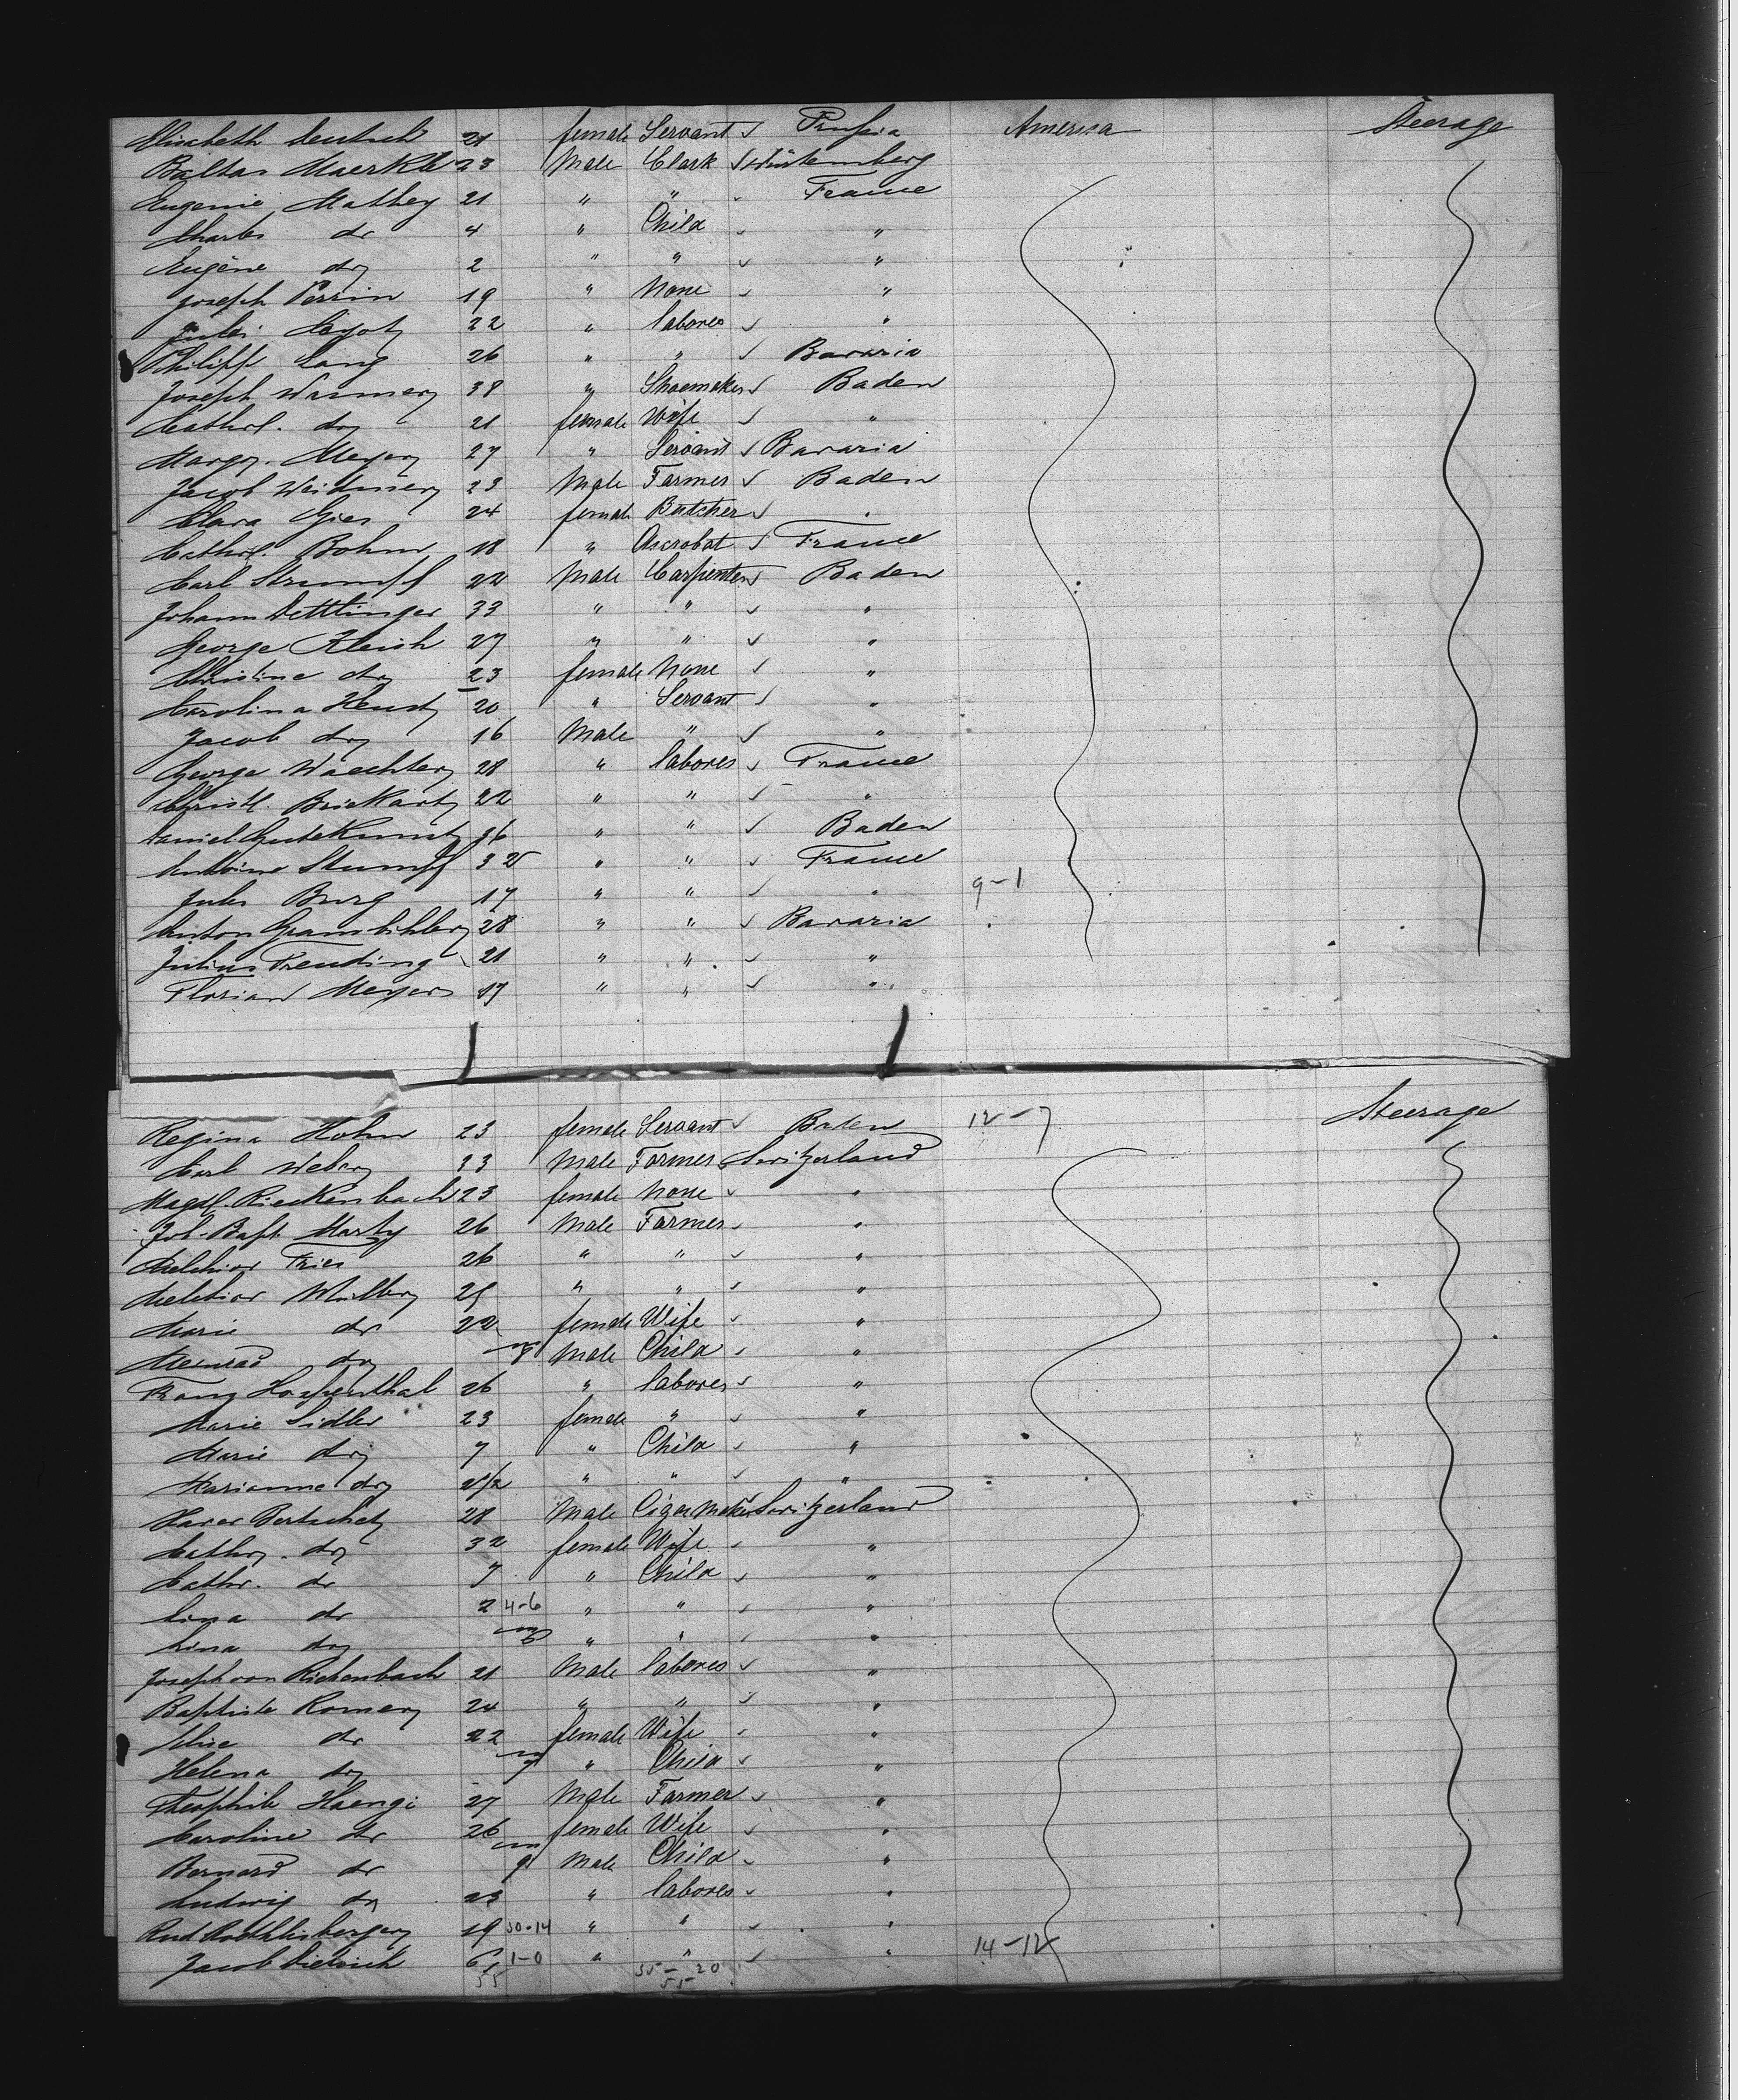 Elisabeth Deutsch 21 female Servant ✓ Prussia America Steerage
Baltas Maerkle 23 Male Clark ✓ Würtemberg
Eugenie Mathey 21 " " ✓ France
Charles do 4 " Child ✓ "
Eugêne do 2 " " ✓ "
Joseph Perrin 19 " None ✓ "
Jules 22 " laborer ✓ "
Philipp Lang 26 " " ✓ Bavaria
Joseph Wasmer 38 " Shoemaker ✓ Baden
Cathrl. do 21 female Wife ✓ "
Margr. Meyer 27 " Servant ✓ Bavaria
Jacob Weidmer 23 Male Farmer ✓ Baden
Clara Gies 24 female Butcher ✓ "
Cathrl. Bohm 18 " Ascrobat ✓ France
Carl Strumpf 22 Male Carpenter ✓ Baden
Johann Dettlinger 33 " " ✓ "
George 27 " " ✓ "
Christine do 23 female None ✓ "
Carolina 20 " Servant ✓ "
Jacob do 16 Male " ✓ "
George Waechter 28 " laborer ✓ France
Christ. Brickart 22 " " ✓ "
Daniel Gutekunst 36 " " ✓ Baden
Antoine Stumpf 32 " " ✓ France
Jules Burg 17 " " ✓ " 9-1
Anton 28 " " ✓ Bavaria
Julius Trending 21 " " ✓ "
Florian Meyer 17 " " ✓ "
Regina Hohn 23 female Servant ✓ Baden 12-7 Steerage
Carl Weber 33 Male Farmer Switzerland
Magdl. Rieckenbach 23 female None ✓ "
Joh. Bapt. Marty 26 Male Farmer ✓ "
Melchior Fries 26 " " ✓ "
Melchior 25 " " ✓ "
Marie do 22 female Wife ✓ "
Meinrad do m Male Child ✓ "
Franz Hospenthal 26 " laborer ✓ "
Marie Sidler 23 female " ✓ "
Marie do 7 " Child ✓ "
Marianne do " " ✓ "
Xaver Bertschet 28 Male Cigar Maker Switzerland
Cathr. do 32 female Wife ✓ "
Cathr. do 7 " Child ✓ "
Lina do 2 4-6 " " ✓ "
Lina do m " " ✓ "
Joseph von Rickenbach 21 Male laborer ✓ "
Baptiste Romer 24 " " ✓ "
Elise do 22 female Wife ✓ "
Helena do m " Child ✓ "
Theophile Haengi 27 Male Farmer ✓ "
Caroline do 26 female Wife ✓ "
Bernard do m 9 Male Child ✓ "
Ludwig do 23 " laborer ✓ "
Rud Roethlisberger 19 50-14 " " ✓ "
Jacob Dietrich 1-0 " " ✓ " 14-12
55 35-20
55